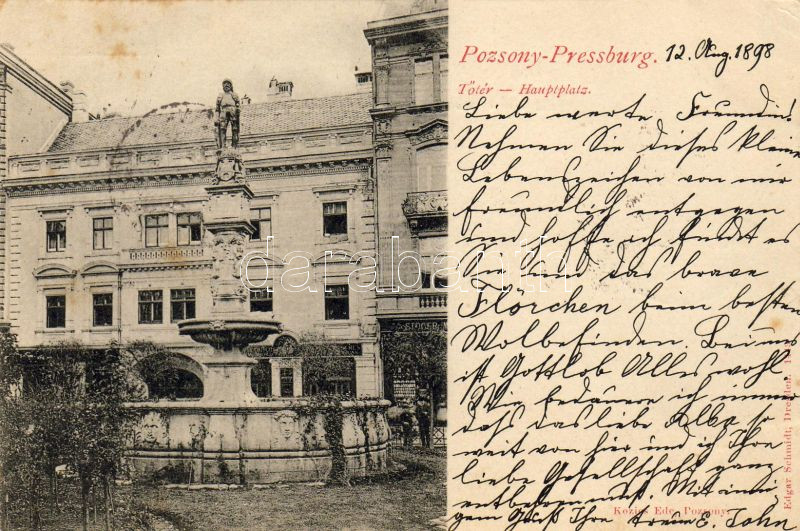 Pozsony-Pressburg. 12. Aug. 1898
Főtér — Hauptplatz.
Liebe werte Freundin!
Nehmen Sie dieses kleine
Lebenszeichen von mir
freundlich entgegen
und hoffe ich findet es
Sie und das brave
Flörchen beim besten
Wolbefinden. Bei uns
ist Gottlob Alles wohl.
Wie bedauere ich immer
dass das liebe so
weit von hier und ich Ihre
liebe Gesellschaft ganz
entbehren muß. Mit inni
gem Gruß Ihre treue E. John
Kozics Ede, Pozsony.
Edgar Schmidt, Dresden.
darabanth